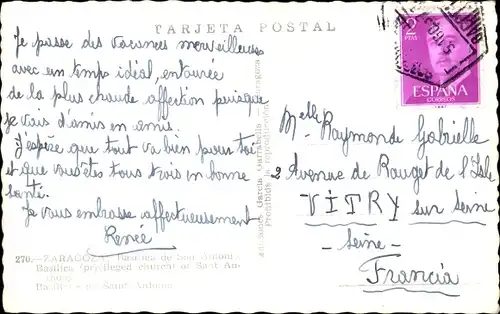 TARJETA POSTAL
Je passe des vacances merveilleuses
avec un temps idéal, entourée
de la plus chaude affection puisque
je vais d'amis en amis.
J'espère que tout va bien pour toi
et que vous êtes tous trois en bonne
santé.
Je vous embrasse affectueusement
Renée
270.—ZARAGOZA. Basílica de San Antonio
Basilica (privileged church) of Saint An-
Basilique de Saint Antoine
García Garrabella
Zaragoza
Prohibida la reproducción
2
PTAS
ESPAÑA
CORREOS
Melle Raymonde Gabrielle
2 Avenue de Rouget de l'Isle
VITRY sur Seine
- Seine -
Francia